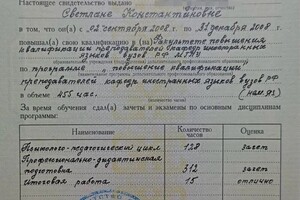 Настоящее свидетельство выдано
Светлане Константиновне
в том, что он(а) с 02 сентября 2008 г. по 31 декабря 2008 г.
повышал(а) свою квалификацию в (на) Факультете повышения
квалификации преподавателей кафедр иностранных
языков вузов РФ
по программе повышение квалификации
преподавателей кафедр иностранных языков вузов РФ
в объеме 455 час. (нем. яз)
За время обучения сдал(а) зачеты и экзамены по основным дисциплинам
программы:
Наименование Количество часов Оценка
Психолого-педагогический цикл 128 зачет
Профессионально-дидактическая
подготовка 312 зачет
Итоговая работа 15 отлично